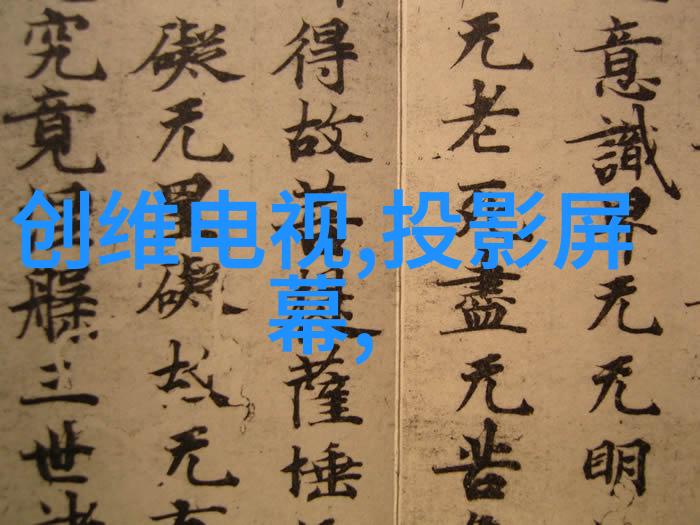 创维电视,投影屏
幕,
意識界无无明
无老死盡无苦
得故菩提薩埵
礙无罣礙故无有
究竟涅槃三世諸